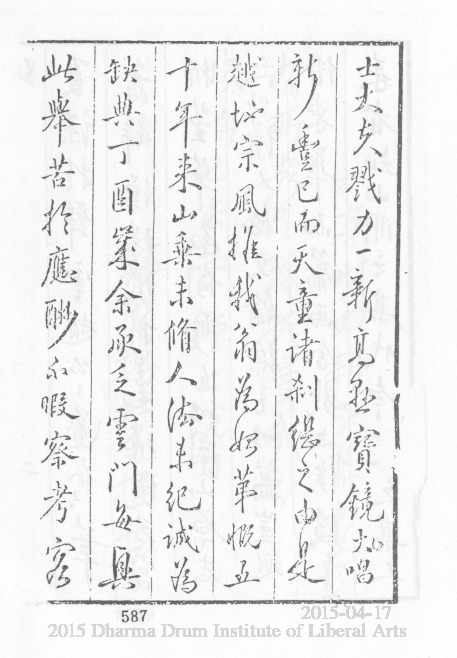 士大夫戮力一新高懸寶鏡大唱
新豐已而天童諸剎繼之由是
越城宗風推我翁為始第慨五
十年來山乘未脩人法未紀誠為
缺典丁酉歲余承乏雲門每興
此舉苦於應酬不暇察考客
587
2015-04-17
2015 Dharma Drum Institute of Liberal Arts